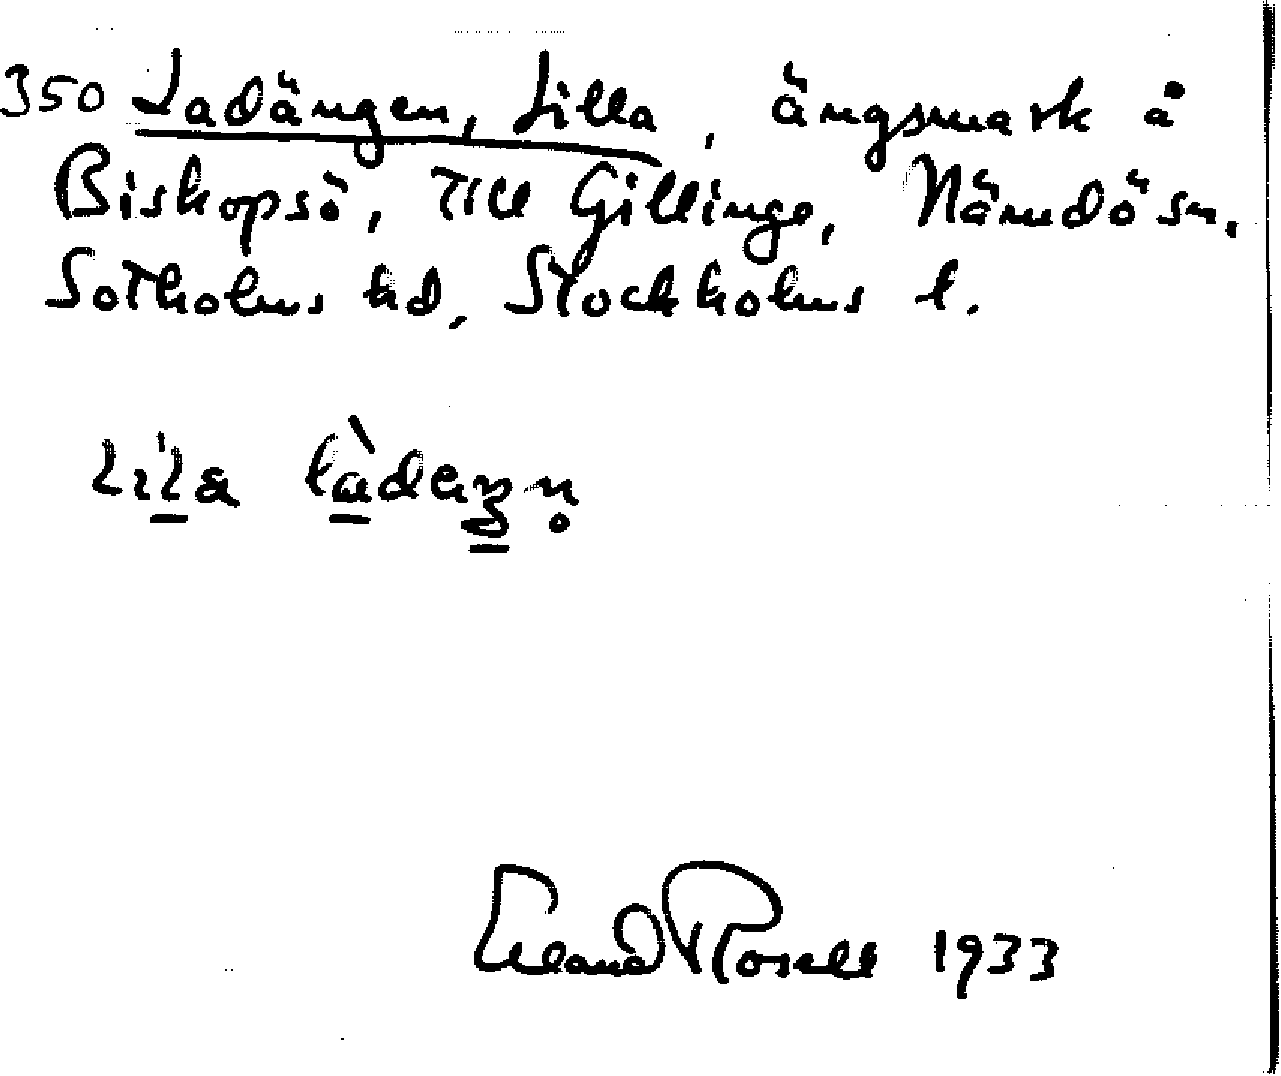 350 Ladängen, Lilla, ängsmark å
Biskopsö, till Gillinge, Nämdö sn,
Sotholms hd, Stockholms l.
Erland Rosell 1933